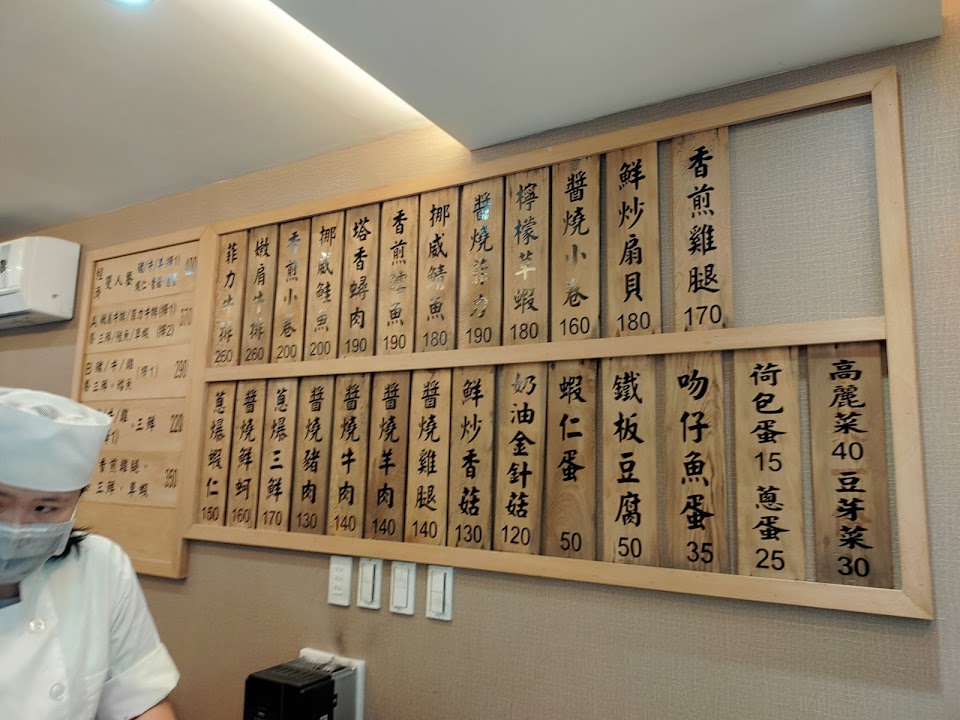 香煎雞腿 170
鮮炒扇貝 180
醬燒小卷 160
檸檬草蝦 180
醬燒 190
挪威鯖魚 180
香煎鱈魚 190
塔香蟳肉 190
挪威鮭魚 200
香煎小卷 200
嫩肩牛排 260
菲力牛排 260
高麗菜 40 豆芽菜 30
荷包蛋 15 蔥蛋 25
吻仔魚蛋 35
鐵板豆腐 50
蝦仁蛋 50
奶油金針菇 120
鮮炒香菇 130
醬燒雞腿 140
醬燒羊肉 140
醬燒牛肉 140
醬燒豬肉 130
蔥爆三鮮 170
醬燒鮮蚵 160
蔥爆蝦仁 150
雙人餐
370
290
三鮮 220
香煎雞腿、
三鮮、草蝦 350